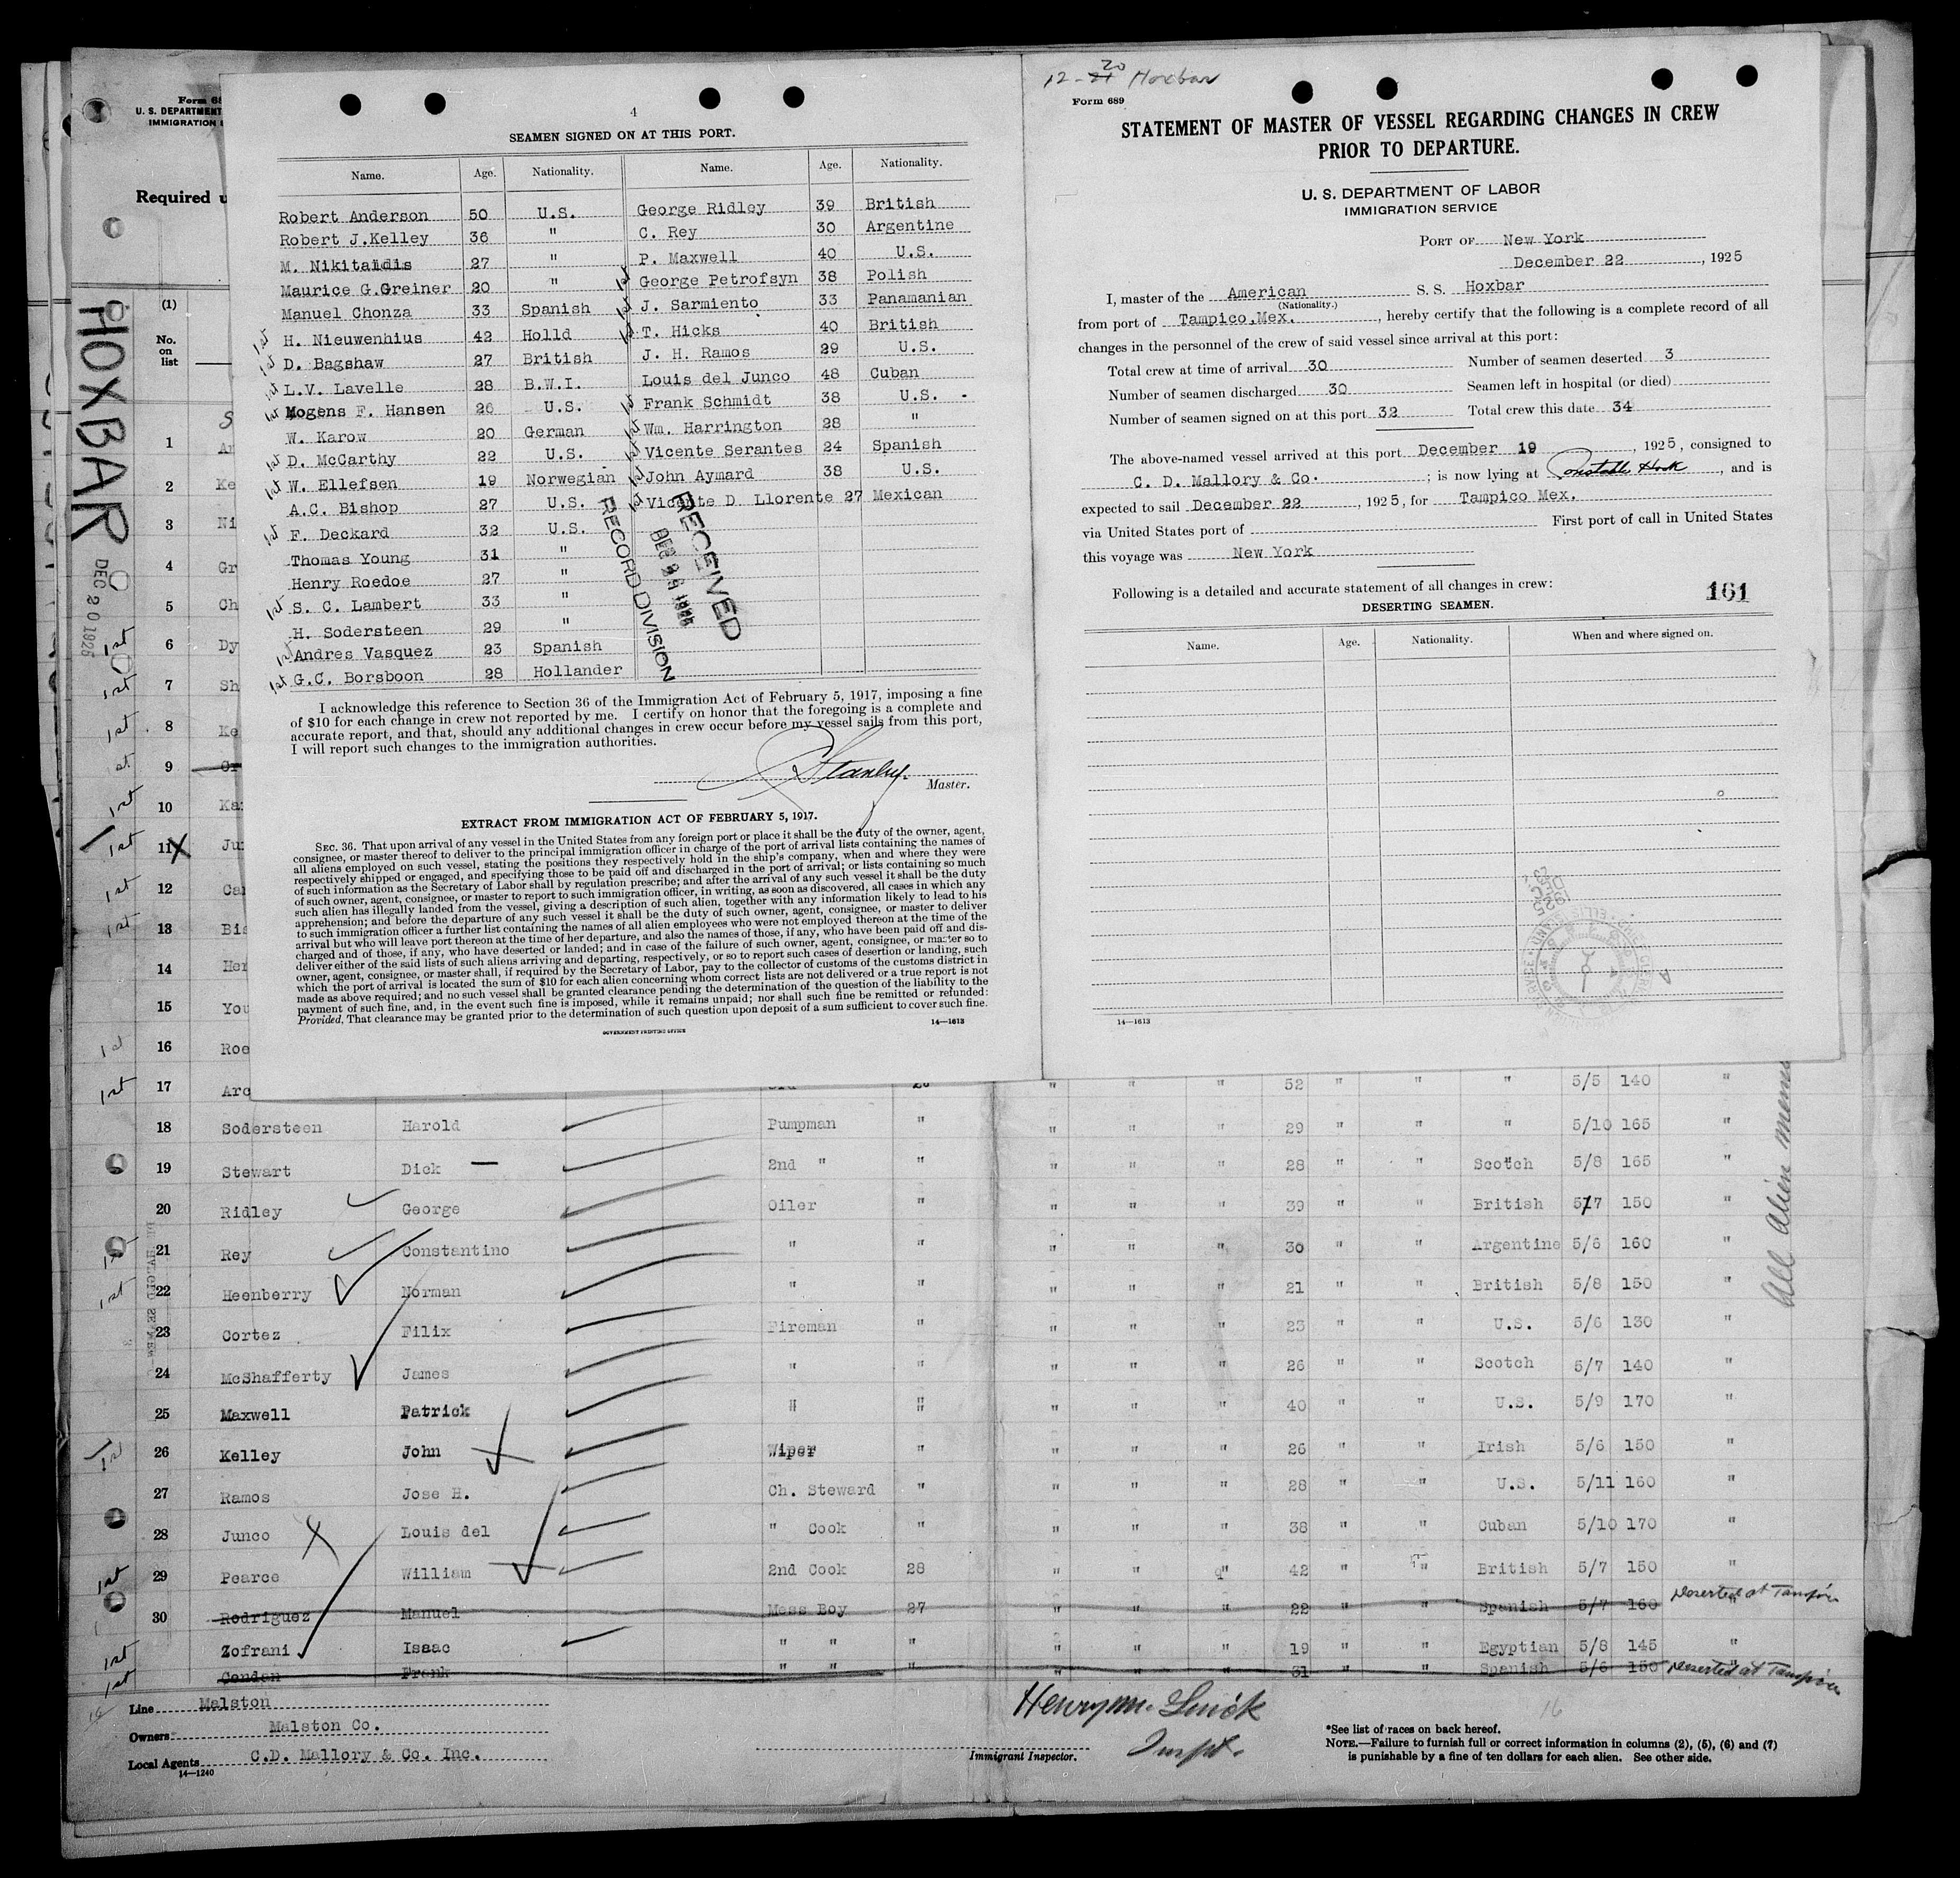 4
SEAMEN SIGNED ON AT THIS PORT.
Name. Age. Nationality. Name. Age. Nationality.
Robert Anderson 50 U.S. George Ridley 39 British
Robert J.Kelley 36 " C. Rey 30 Argentine
M. Nikitaidis 27 " P. Maxwell 40 U.S.
Maurice G.Greiner 20 " 1st George Petrofsyn 38 Polish
Manuel Chonza 33 Spanish 1st J. Sarmiento 33 Panamanian
1st H. Nieuwenhius 42 Holld 1st T. Hicks 40 British
1st D. Bagshaw 27 British J. H. Ramos 29 U.S.
1st L.V. Lavelle 28 B.W.I. Louis del Junco 48 Cuban
1st Mogens F. Hansen 26 U.S. 1st Frank Schmidt 38 U.S.
W. Karow 20 German 1st Wm. Harrington 28 "
1st D. McCarthy 22 U.S. 1st Vicente Serantes 24 Spanish
1st W. Ellefsen 19 Norwegian 1st John Aymard 38 U.S.
A.C. Bishop 27 U.S. 1st Vicente D Llorente 27 Mexican
1st F. Deckard 32 U.S.
Thomas Young 31 "
Henry Roedoe 27 "
1st S. C. Lambert 33 "
H. Sodersteen 29 "
1st Andres Vasquez 23 Spanish
1st G.C. Borsboon 28 Hollander
RECEIVED
RECORD DIVISION
I acknowledge this reference to Section 36 of the Immigration Act of February 5, 1917, imposing a fine
of $10 for each change in crew not reported by me. I certify on honor that the foregoing is a complete and
accurate report, and that, should any additional changes in crew occur before my vessel sails from this port,
I will report such changes to the immigration authorities.
Stanley.
Master.
EXTRACT FROM IMMIGRATION ACT OF FEBRUARY 5, 1917.
SEC. 36. That upon arrival of any vessel in the United States from any foreign port or place it shall be the duty of the owner, agent,
consignee, or master thereof to deliver to the principal immigration officer in charge of the port of arrival lists containing the names of
all aliens employed on such vessel, stating the positions they respectively hold in the ship's company, when and where they were
respectively shipped or engaged, and specifying those to be paid off and discharged in the port of arrival; or lists containing so much
of such information as the Secretary of Labor shall by regulation prescribe; and after the arrival of any such vessel it shall be the duty
of such owner, agent, consignee, or master to report to such immigration officer, in writing, as soon as discovered, all cases in which any
such alien has illegally landed from the vessel, giving a description of such alien, together with any information likely to lead to his
apprehension; and before the departure of any such vessel it shall be the duty of such owner, agent, consignee, or master to deliver
to such immigration officer a further list containing the names of all alien employees who were not employed thereon at the time of the
arrival but who will leave port thereon at the time of her departure, and also the names of those, if any, who have been paid off and dis-
charged and of those, if any, who have deserted or landed; and in case of the failure of such owner, agent, consignee, or master so to
deliver either of the said lists of such aliens arriving and departing, respectively, or so to report such cases of desertion or landing, such
owner, agent, consignee, or master shall, if required by the Secretary of Labor, pay to the collector of customs of the customs district in
which the port of arrival is located the sum of $10 for each alien concerning whom correct lists are not delivered or a true report is not
made as above required; and no such vessel shall be granted clearance pending the determination of the question of the liability to the
payment of such fine, and, in the event such fine is imposed, while it remains unpaid; nor shall such fine be remitted or refunded:
Provided, That clearance may be granted prior to the determination of such question upon deposit of a sum sufficient to cover such fine.
GOVERNMENT PRINTING OFFICE
14—1613
12-21 20 Hoxbar
Form 689
STATEMENT OF MASTER OF VESSEL REGARDING CHANGES IN CREW
PRIOR TO DEPARTURE.
U. S. DEPARTMENT OF LABOR
IMMIGRATION SERVICE
PORT OF New York
December 22, 1925
I, master of the American S. S. Hoxbar
(Nationality.)
from port of Tampico,Mex., hereby certify that the following is a complete record of all
changes in the personnel of the crew of said vessel since arrival at this port:
Total crew at time of arrival 30 Number of seamen deserted 3
Number of seamen discharged 30 Seamen left in hospital (or died)
Number of seamen signed on at this port 32 Total crew this date 34
The above-named vessel arrived at this port December 19, 1925, consigned to
C. D. Mallory & Co.; is now lying at Constable Hook, and is
expected to sail December 22, 1925, for Tampico Mex.
via United States port of First port of call in United States
this voyage was New York
Following is a detailed and accurate statement of all changes in crew:
161
DESERTING SEAMEN.
Name. Age. Nationality. When and where signed on.
14—1613
U. S. DEPARTMENT
IMMIGRATION
Required
HOXBAR
DEC 20 1925
(1)
No.
on
list
1
2 Ke
3 Ni
4 Gr
5 Ch
1st 6 Dy
1st 7 Sh
1st 8 Ke
1st 9
1st 10 Ka
1st 11 X Ju
1st 12 Ca
1st 13 Bis
14 Her
15 You
1st 16 Roe
1st 17 Arc " " " 52 " " " 5/5 140 "
18 Sodersteen Harold Pumpman " " " " 29 " " " 5/10 165 "
19 Stewart Dick — 2nd " " " " " 28 " " Scotch 5/8 165 "
20 Ridley George Oiler " " " " 39 " " British 5/7 150 "
1st 21 Rey Constantino " " " " " 30 " " Argentine 5/6 160 "
1st 22 Heenberry Norman " " " " " 21 " " British 5/8 150 "
23 Cortez Filix Fireman " " " " 23 " " U.S. 5/6 130 "
24 McShafferty James " " " " " 26 " " Scotch 5/7 140 "
25 Maxwell Patrick " " " " " 40 " " U.S. 5/9 170 "
1st 26 Kelley John Wiper " " " " 26 " " Irish 5/6 150 "
27 Ramos Jose H. Ch. Steward " " " " 28 " " U.S. 5/11 160 "
28 Junco Louis del " Cook " " " " 38 " " Cuban 5/10 170 "
1st 29 Pearce William 2nd Cook 28 " " " 42 " " British 5/7 150 "
30 Rodriguez Manuel Mess Boy 27 " " " 22 " " Spanish 5/7 160 Deserted at Tampico
1st Zofrani Isaac " " " " " " 19 " " Egyptian 5/8 145 "
1st Condan Frank " " " " " " 31 " " Spanish 5/6 150 Deserted at Tampico
All alien
Line Malston
Owners Malston Co.
Local Agents C.D. Mallory & Co. Inc.
14—1240
Immigrant Inspector.
16
*See list of races on back hereof.
NOTE.—Failure to furnish full or correct information in columns (2), (5), (6) and (7)
is punishable by a fine of ten dollars for each alien. See other side.